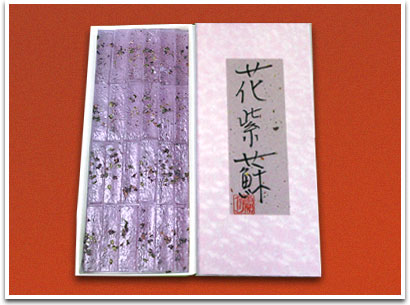 花紫蘇